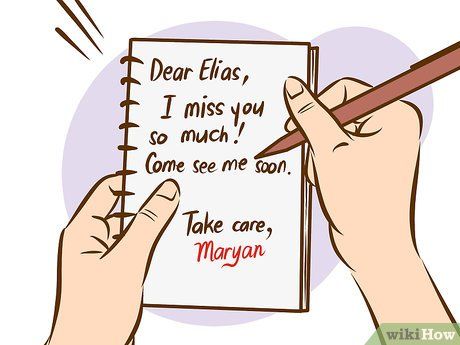 Dear Elias,
I miss you
so much!
Come see me soon.
Take care,
Maryan
wikiHow